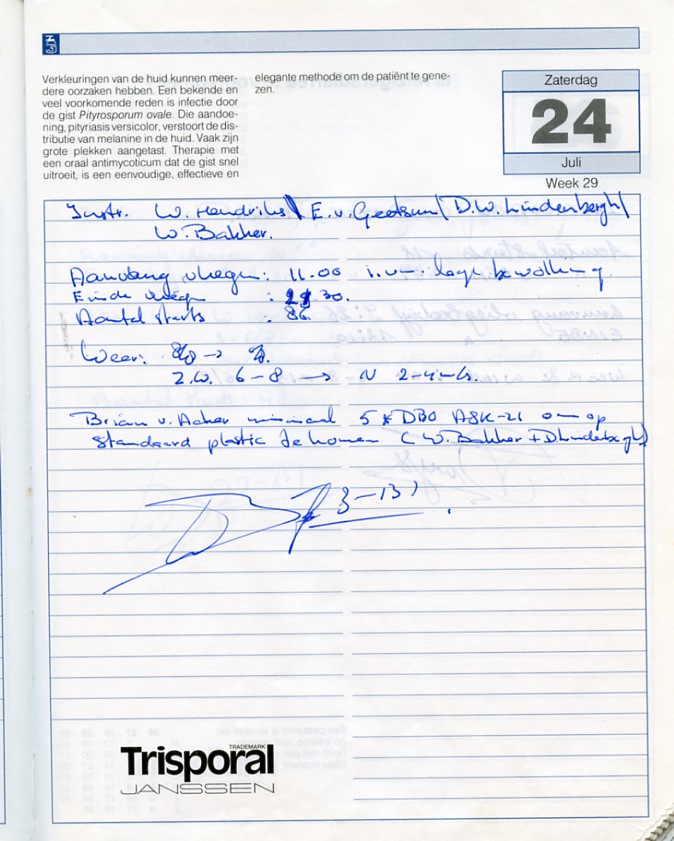 Verkleuringen van de huid kunnen meer-
dere oorzaken hebben. Een bekende en
veel voorkomende reden is infectie door
de gist Pityrosporum ovale. Die aandoe-
ning, pityriasis versicolor, verstoort de dis-
tributie van melanine in de huid. Vaak zijn
grote plekken aangetast. Therapie met
een oraal antimycoticum dat de gist snel
uitroeit, is een eenvoudige, effectieve en
elegante methode om de patiënt te gene-
zen.
Zaterdag
24
Juli
Week 29
Instr. W. Hendriks / E. v. / D.W. Lindenbergh /
W. Bakker.
Aanvang vliegen: 11.00 i.v.m. lage bewolking.
Einde vliegen : 30.
Aantal starts : 86.
Weer: 8/8 →
Z.W. 6-8 → N 2-4 m/s.
Brian v. Acker minimaal 5 * DBO ASK-21 om op
standaard plastic te komen (W. Bakker + D Lindebergh)
Trisporal
TRADEMARK
JANSSEN